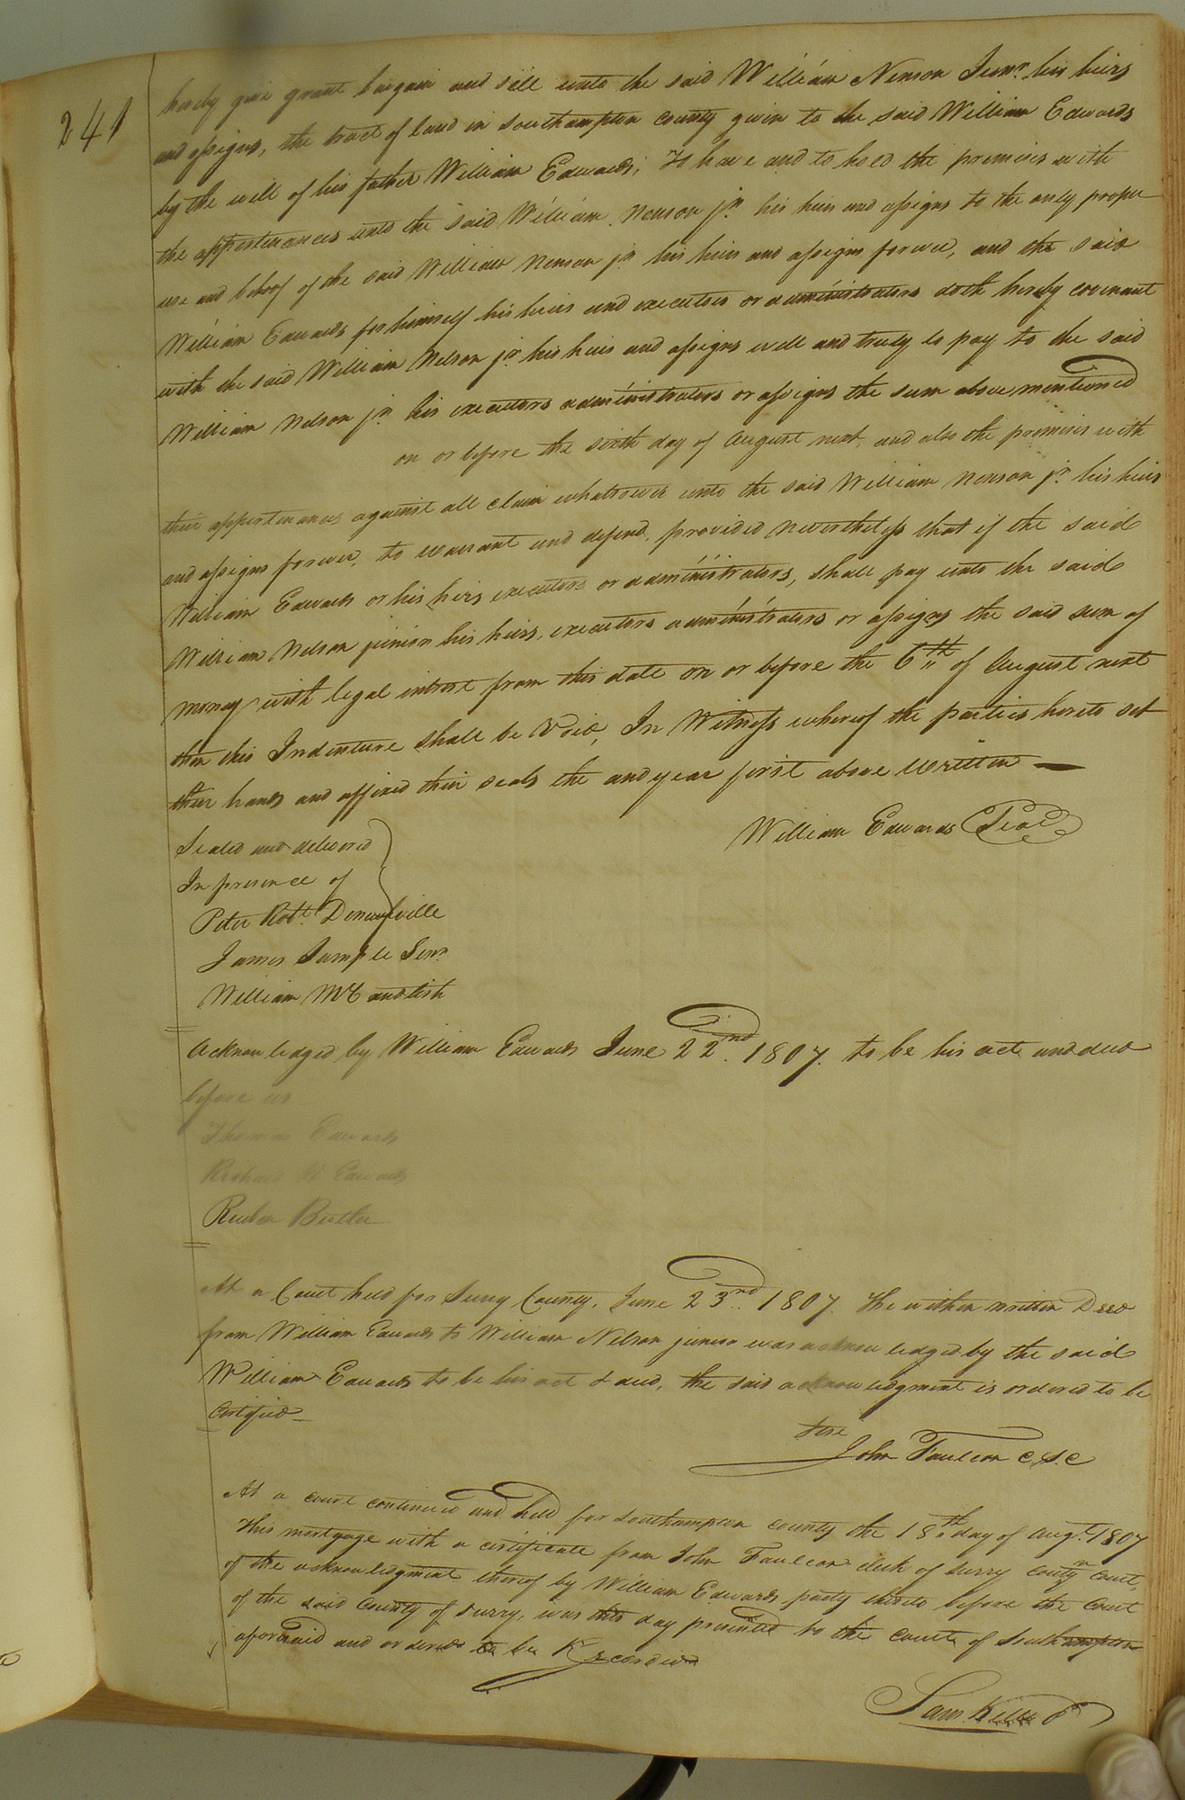 241
hereby give grant bargain and sell unto the said William Nenson Junr. his heirs
and assigns, the tract of land in Southampton County given to the said William Edwards
by the will of his father William Edwards, To have and to hold the premises with
the appertenances unto the said William Nenson jr. his heirs and assigns to the only proper
use and behoof of the said William Nenson jr his heirs and assigns forever, and the said
William Edwards for himself his heirs and executors or administrators doth hereby covenant
with the said William Nelson jr. his heirs and assigns well and truly to pay to the said
William Nelson jr. his executors administrators or assigns the sum above mentioned
on or before the sixth day of August next, and also the premises with
their appertenances against all claim whatsoever unto the said William Nenson jr. his heirs
and assigns forever, to warrant and defend, provided nevertheless that if the said
William Edwards or his heirs executors or administrators, shall pay unto the said
William Nelson junior his heirs, executors administrators or assigns the said sum of
money with legal intrest from this date on or before the 6th of August next
then this Indenture shall be Void, In Witness whereof the parties hereto set
their hands and affixed their seals the and year first above Written —
William Edwards Seal
Sealed and delivered
In presence of
Peter Robt. Deneufville
James Semple Senr.
William McCandlish
Acknowledged by William Edwards June 22nd. 1807. to be his act and deed
before us
Thomas Edwards
Richard H Edwards
Reuben Butler
At a Court held for Surry County, June 23rd. 1807. The within written Deed
from William Edwards to William Nelson junior was acknowledged by the said
William Edwards to be his act & deed, the said acknowledgment is ordered to be
Certified —
Teste
John Faulcon C.S.C
At a court continued and held for Southampton county the 18th day of Augt. 1807
This mortgage with a certificate from John Faulcon clerk of Surry County Court,
of the acknowledgment thereof by William Edwards party thereto before the Court
of the said County of Surry, was this day presented to the Court of Southampton
aforesaid and ordered to be Recorded
Sam. Kello